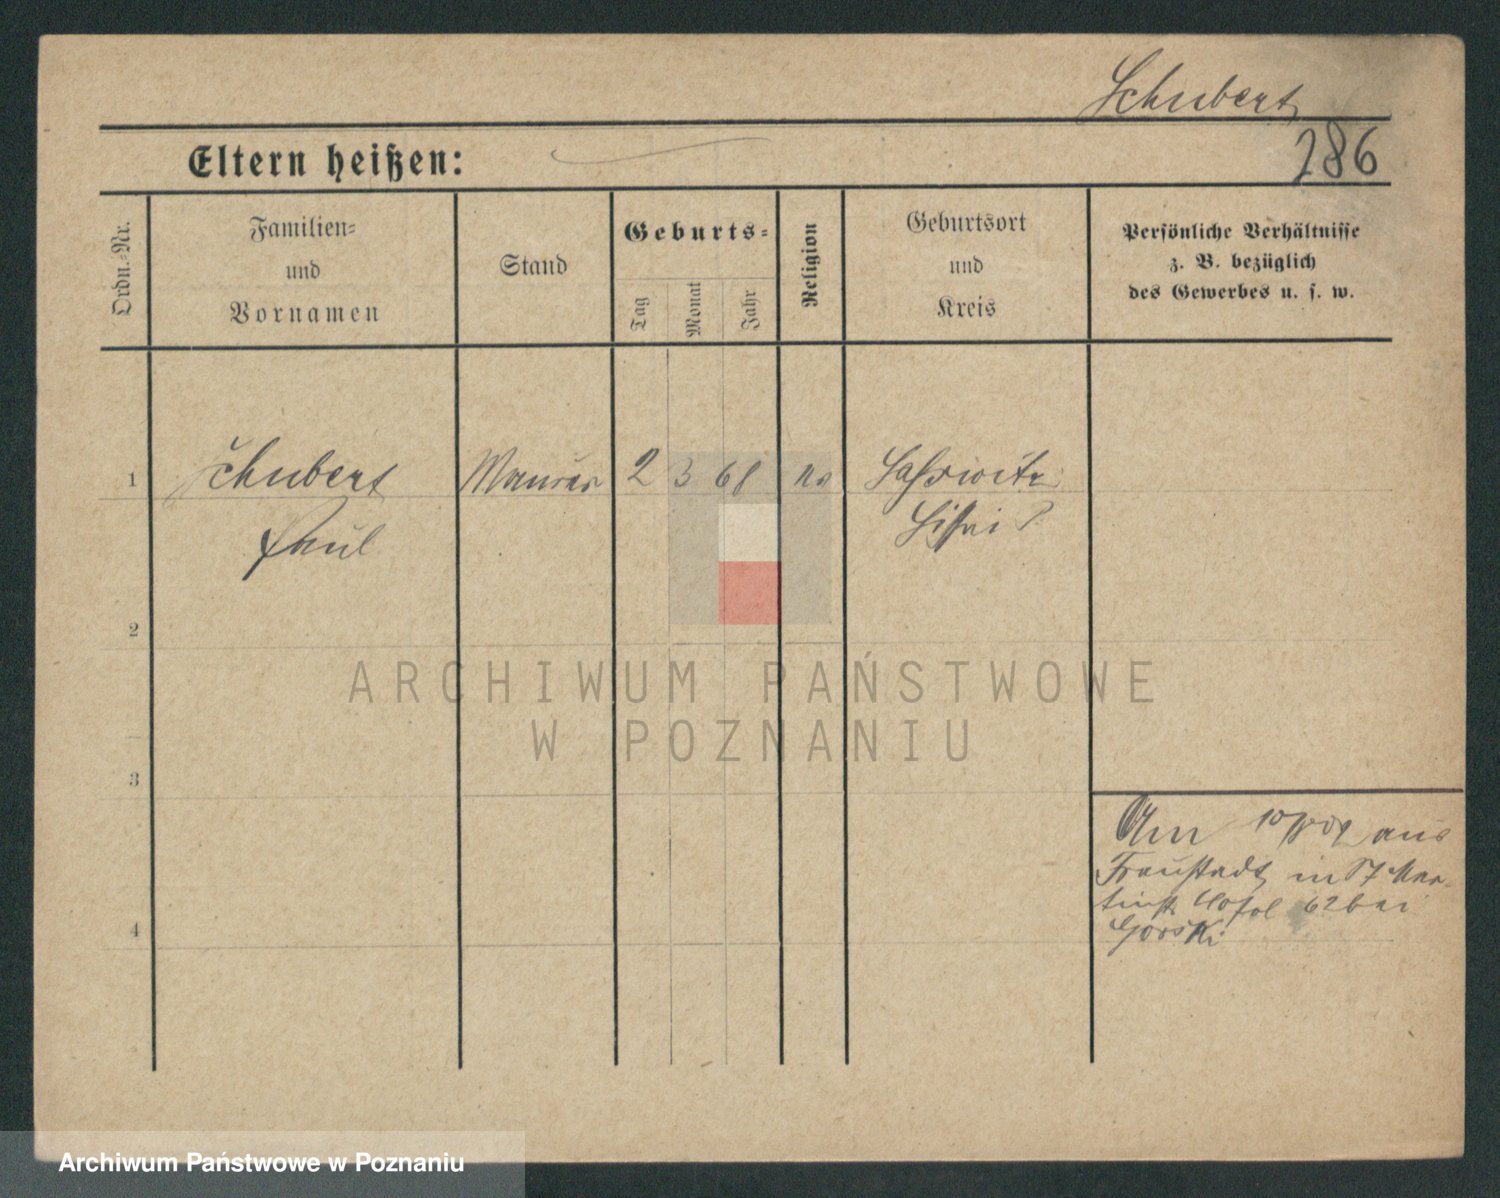 Schubert
Eltern heißen:
286
Ordn.-Nr.
Familien-
und
Vornamen
Stand
Geburts-
Tag
Monat
Jahr
Religion
Geburtsort
und
Kreis
Persönliche Verhältnisse
z. B. bezüglich
des Gewerbes u. s. w.
1
Schubert
Maurer
2
3
68
Paul
2
ARCHIWUM PAŃSTWOWE
W POZNANIU
3
Am aus
Fraustadt in St Mar-
62 bei
Gorski
4
Archiwum Państwowe w Poznaniu